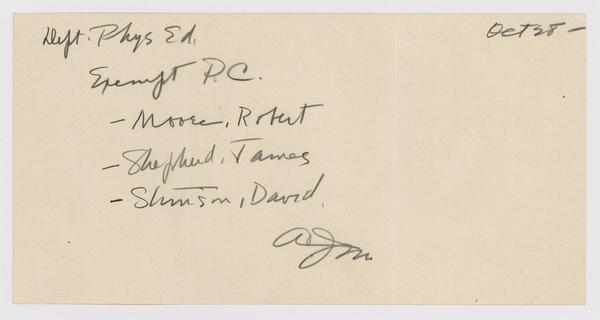 Dept. Phys Ed.
Oct 28 -
Exempt P.C.
- Moore, Robert
- Shepherd, James
- Stinson, David.